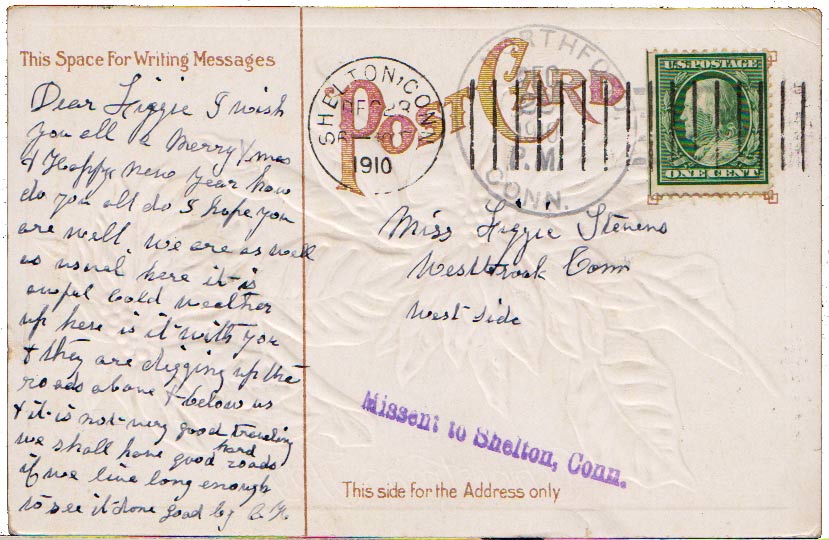 This Space For Writing Messages
Dear Lizzie I wish
you all a Merry Xmas
& Happy new year how
do you all do I hope you
are well. we are as well
as usual here it is
awful cold weather
up here is it with you
& they are digging up the
roads above & below us
& it is not very good traveling
we shall have good hard roads
if we live long enough
to see it done good by
POST CARD
SHELTON, CONN.
DEC
1910
NORTHFORD
DEC
1910
P.M.
CONN.
U.S. POSTAGE
ONE CENT
Miss Lizzie Stevens
Westbrook Conn
West side
Missent to Shelton, Conn.
This side for the Address only